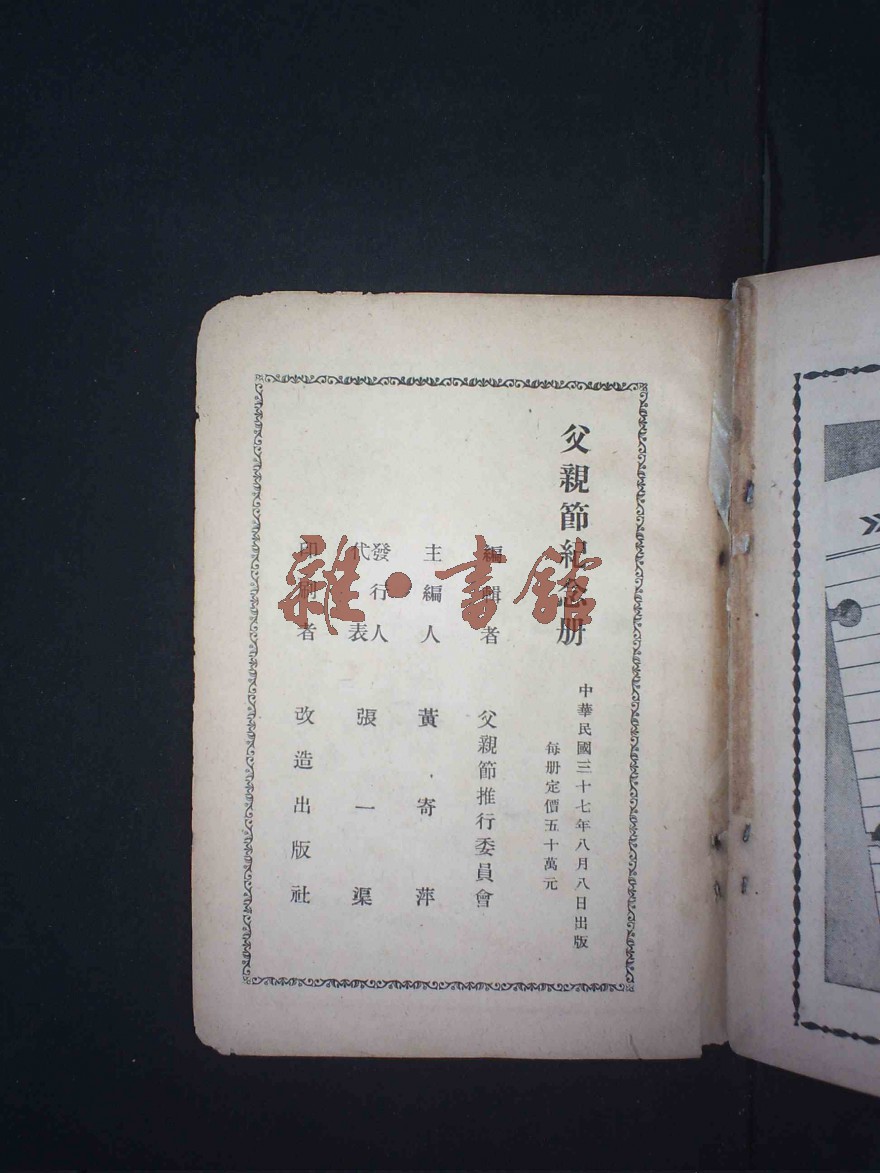 父親節紀念册
中華民國三十七年八月八日出版
每册定價五十萬元
編輯者 父親節推行委員會
主編人 黃寄萍
發行人代表 張一渠
印刷者 改造出版社
雜·書館